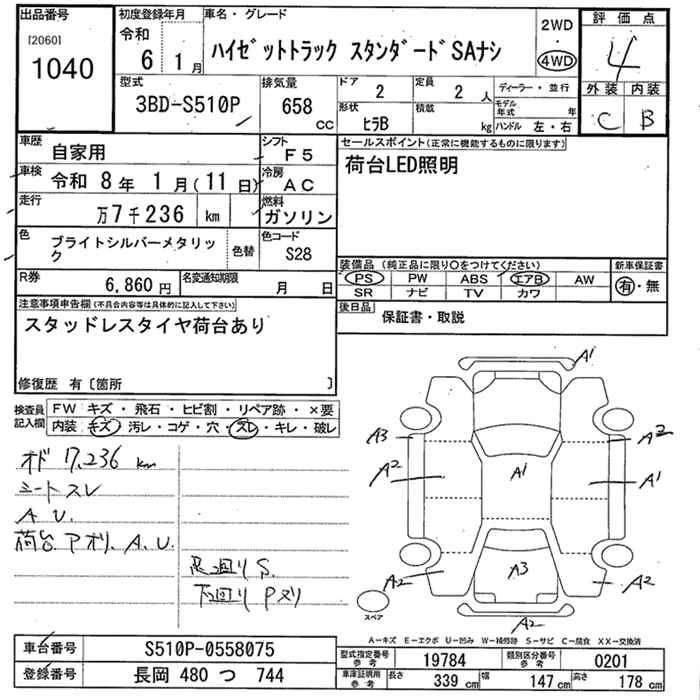 出品番号
[2060]
1040
初度登録年月
令和
6 1月
車名・グレード
ハイゼットトラック スタンダードSAナシ
2WD
・
4WD
評価点
4
外装 内装
C B
型式
3BD-S510P
排気量
658
cc
ドア
2
定員
2 人
形状
ヒラB
積載
kg
ディーラー・並行
モデル年式 年
ハンドル 左・右
車歴
自家用
シフト
F5
車検
令和 8年 1月(11日)
冷房
AC
走行
万7千236 km
燃料
ガソリン
色
ブライトシルバーメタリック
色替
色コード
S28
R券
6,860円
名変通知期限
月 日
注意事項申告欄(不具合内容等は具体的に記入して下さい)
スタッドレスタイヤ荷台あり
修復歴 有〔箇所 〕
セールスポイント(正常に機能するものに限ります)
荷台LED照明
装備品(純正品に限り○をつけてください)
PS PW ABS エアB AW
SR ナビ TV カワ
新車保証書
有・無
後日品
保証書・取説
検査員記入欄
FW キズ・飛石・ヒビ割・リペア跡・×要
内装 キズ・汚レ・コゲ・穴・スレ・キレ・破レ
オド 7,236 km
シートスレ
A U.
荷台 アオリ、A、U.
足回り S.
下回り Pヌリ
A1
A3
A2
A2
A1
A1
A3
A2
A2
A2
スペア
A-キズ E-エクボ U-凹み W-補修跡 S-サビ C-腐食 XX-交換済
車台番号
S510P-0558075
登録番号
長岡 480 つ 744
型式指定番号
参考
19784
類別区分番号
参考
0201
車庫証明用
参考
長さ
339 cm
幅
147 cm
高さ
178 cm